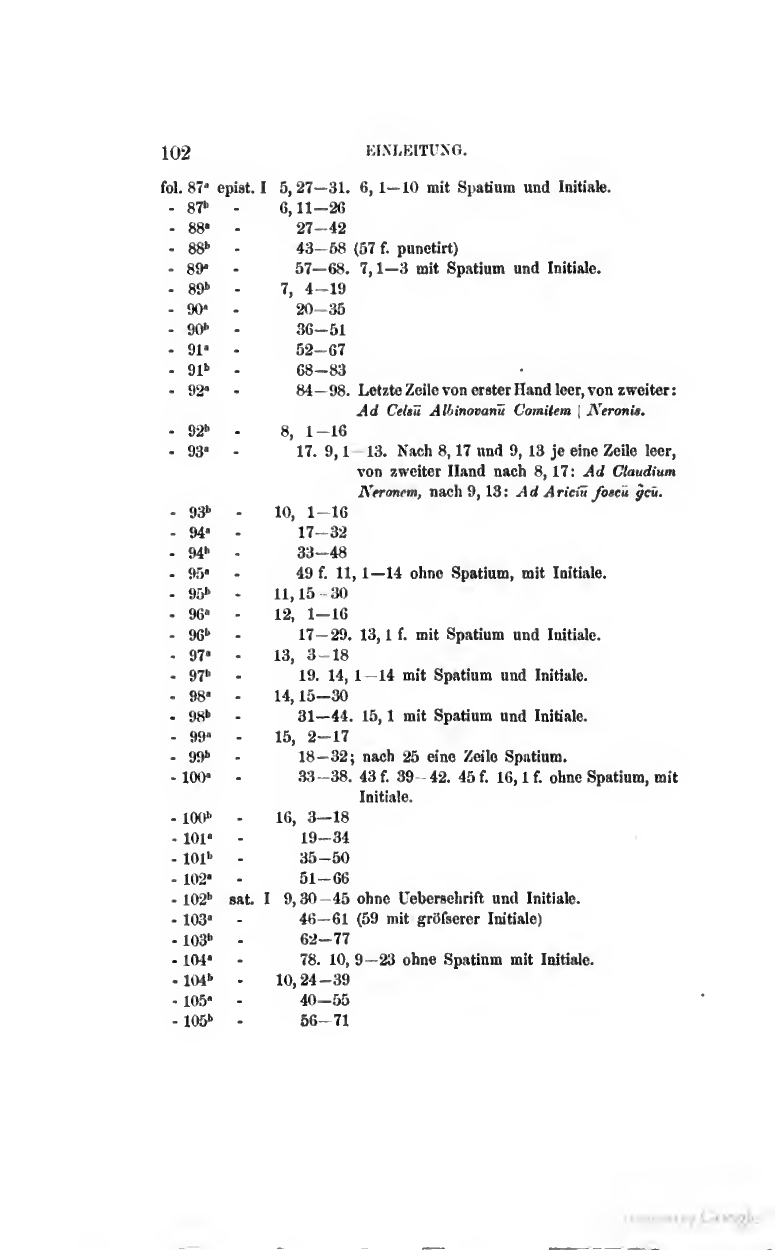 102 EINLEITUNG.
fol. 87ᵃ epist. I 5, 27—31. 6, 1—10 mit Spatium und Initiale.
- 87ᵇ - 6, 11—26
- 88ᵃ - 27—42
- 88ᵇ - 43—58 (57 f. punctirt)
- 89ᵃ - 57—68. 7, 1—3 mit Spatium und Initiale.
- 89ᵇ - 7, 4—19
- 90ᵃ - 20—35
- 90ᵇ - 36—51
- 91ᵃ - 52—67
- 91ᵇ - 68—83
- 92ᵃ - 84—98. Letzte Zeile von erster Hand leer, von zweiter:
Ad Celsū Albinovanū Comitem | Neronis.
- 92ᵇ - 8, 1—16
- 93ᵃ - 17. 9, 1—13. Nach 8, 17 und 9, 13 je eine Zeile leer,
von zweiter Hand nach 8, 17: Ad Claudium
Neronem, nach 9, 13: Ad Ariciū foscū g̃cū.
- 93ᵇ - 10, 1—16
- 94ᵃ - 17—32
- 94ᵇ - 33—48
- 95ᵃ - 49 f. 11, 1—14 ohne Spatium, mit Initiale.
- 95ᵇ - 11, 15—30
- 96ᵃ - 12, 1—16
- 96ᵇ - 17—29. 13, 1 f. mit Spatium und Initiale.
- 97ᵃ - 13, 3—18
- 97ᵇ - 19. 14, 1—14 mit Spatium und Initiale.
- 98ᵃ - 14, 15—30
- 98ᵇ - 31—44. 15, 1 mit Spatium und Initiale.
- 99ᵃ - 15, 2—17
- 99ᵇ - 18—32; nach 25 eine Zeile Spatium.
- 100ᵃ - 33—38. 43 f. 39—42. 45 f. 16, 1 f. ohne Spatium, mit
Initiale.
- 100ᵇ - 16, 3—18
- 101ᵃ - 19—34
- 101ᵇ - 35—50
- 102ᵃ - 51—66
- 102ᵇ sat. I 9, 30—45 ohne Ueberschrift und Initiale.
- 103ᵃ - 46—61 (59 mit gröſserer Initiale)
- 103ᵇ - 62—77
- 104ᵃ - 78. 10, 9—23 ohne Spatinm mit Initiale.
- 104ᵇ - 10, 24—39
- 105ᵃ - 40—55
- 105ᵇ - 56—71
Google